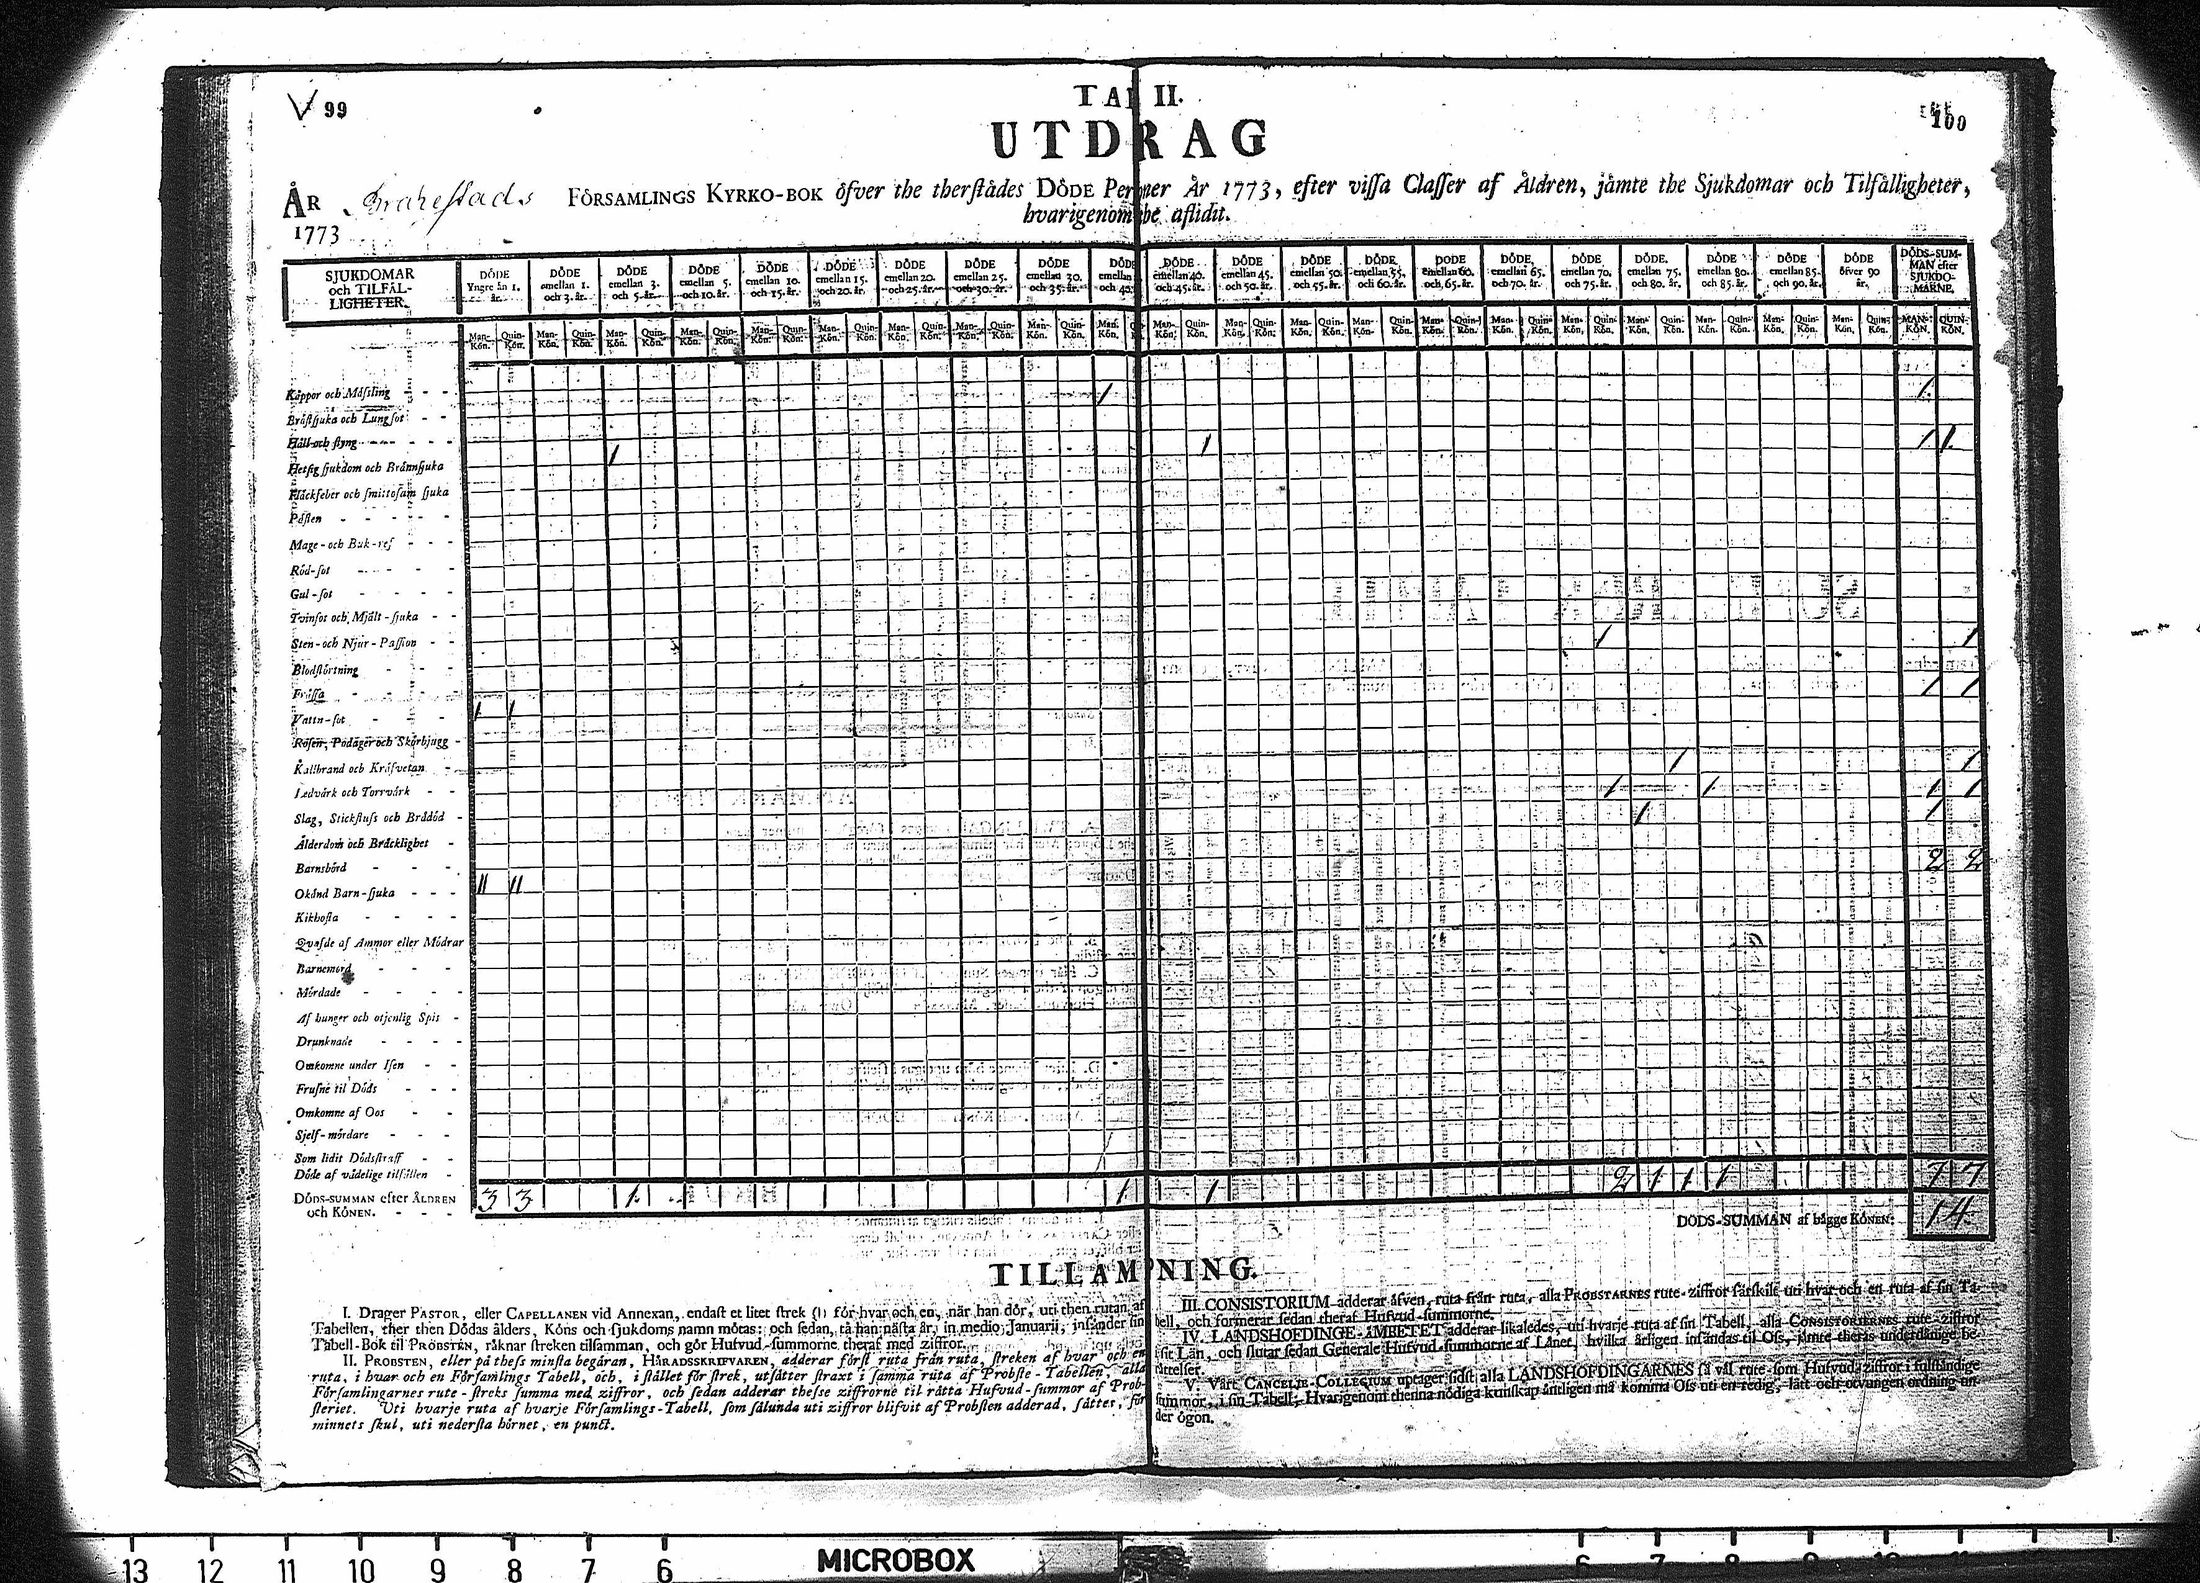 V 99
TAB II.
100
UTDRAG
ÅR 1773
Brahestads FÖRSAMLINGS KYRKO-BOK öfver the therstädes DÖDE Personer År 1773, efter vissa Classer af Åldren, jämte the Sjukdomar och Tilfälligheter,
hvarigenom the aflidit.
SJUKDOMAR och TILFÄL-LIGHETER.
DÖDE Yngre än 1. år.
DÖDE emellan 1. och 3. år.
DÖDE emellan 3. och 5. år.
DÖDE emellan 5. och 10. år.
DÖDE emellan 10. och 15. år.
DÖDE emellan 15. och 20. år.
DÖDE emellan 20. och 25. år.
DÖDE emellan 25. och 30. år.
DÖDE emellan 30. och 35. år.
DÖDE emellan och 40.
DÖDE emellan 40. och 45. år.
DÖDE emellan 45. och 50. år.
DÖDE emellan 50. och 55. år.
DÖDE emellan 55. och 60. år.
DÖDE emellan 60. och 65. år.
DÖDE emellan 65. och 70. år.
DÖDE emellan 70. och 75. år.
DÖDE emellan 75. och 80. år.
DÖDE emellan 80. och 85. år.
DÖDE emellan 85. och 90. år.
DÖDE öfver 90 år.
DÖDS-SUM-MAN efter SJUKDO-MARNE.
Man-Kön. Quin-Kön. Man-Kön. Quin-Kön. Man-Kön. Quin-Kön. Man-Kön. Quin-Kön. Man-Kön. Quin-Kön. Man-Kön. Quin-Kön. Man-Kön. Quin-Kön. Man-Kön. Quin-Kön. Man-Kön. Quin-Kön. Man-Kön. Man-Kön. Quin-Kön. Man-Kön. Quin-Kön. Man-Kön. Quin-Kön. Man-Kön. Quin-Kön. Man-Kön. Quin-Kön. Man-Kön. Quin-Kön. Man-Kön. Quin-Kön. Man-Kön. Quin-Kön. Man-Kön. Quin-Kön. Man-Kön. Quin-Kön. Man-Kön. Quin-Kön. MAN-KÖN. QUIN-KÖN.
Kåppor och Mäsling - - - 1 1
Bröstsjuka och Lungsot - -
Håll och styng - - - 1 1 1
Hetsig sjukdom och Brännsjuka 1
Fläckfeber och smittosam sjuka
Pästen - - - -
Mage-och Buk-ref - - -
Röd-sot - - - -
Gul-sot - - - -
Tvinsot och Mjält-sjuka - -
Sten-och Njur-Passion - - 1 1
Blodstörtning - - -
Frässa - - - - 1 1
Vattn-sot - - - 1 1
Rosen, Podager och Skörbjugg -
Kallbrand och Kräfvetan - 1 1
Ledvärk och Torrvärk - - 1 1 1 1
Slag, Stickfluss och Brådöd - 1 1
Ålderdom och Bräcklighet -
Barnsbörd - - - 2 2
Okänd Barn-sjuka - - - 11 11
Kikhosta - - - -
Qvafde af Ammor eller Mödrar
Barnemord - - -
Mördade - - - -
Af hunger och otjenlig Spis -
Drunknade - - - -
Omkomne under Isen - -
Frusne til Döds - - -
Omkomne af Oos - -
Sjelf-mördare - - -
Som lidit Dödsstraff - -
Döde af vådelige tilfällen -
DÖDS-SUMMAN efter ÅLDREN och KÖNEN. - - - 3 3 1 1 1 2 1 1 1 7 7
DÖDS-SUMMAN af bägge KÖNEN: 14.
TILLÄMPNING.
I. Drager PASTOR, eller CAPELLANEN vid Annexan, endast et litet strek (1) för hvar och en, när han dör, uti then rutan af
Tabellen, ther then Dödas ålders, Köns och sjukdoms namn mötas; och sedan, tå han nästa år, in medio Januarii, insänder sin
Tabell-Bok til PROBSTEN, räknar streken tilsamman, och gör Hufvud-summorne theraf med ziffror.
II. PROBSTEN, eller på thess minsta begäran, HÄRADSSKRIFVAREN, adderar först ruta från ruta, streken af hvar och en
ruta, i hvar och en Församlings Tabell, och, i stället för strek, utsätter straxt i samma ruta af Probste-Tabellen, alla
Församlingarnes rute-streks summa med ziffror, och sedan adderar thesse ziffrorne til rätta Hufvud-summor af Prob-
steriet. Uti hvarje ruta af hvarje Församlings-Tabell, som sålunda uti ziffror blifvit af Probsten adderad, sättes, för
minnets skul, uti nedersta hörnet, en punct.
III. CONSISTORIUM adderar äfven, ruta från ruta, alla PROBSTARNES rute-ziffror särskilt uti hvar och en ruta af sin Ta-
bell, och formerar sedan theraf Hufvud-summorne.
IV. LANDSHÖFDINGE-ÄMBETET adderar likaledes, uti hvarje ruta af sin Tabell, alla CONSISTORIERNES rute-ziffror
i sit Län, och slutar sedan Generale Hufvud-summorne af Länet, hvilka årligen insändas til Oss, jämte theras underdånige be-
rättelser.
V. Vårt CANCELIE-COLLEGIUM uptager sidst alla LANDSHÖFDINGARNES så väl rute-som Hufvud-ziffror i fulständige
summor, i sin Tabell, Hvarigenom thenna nödiga kunskap äntligen må komma Oss uti en redig, lätt och otvungen ordning un-
der ögon.
13 12 11 10 9 8 7 6 MICROBOX 6 7 8 9 10 11